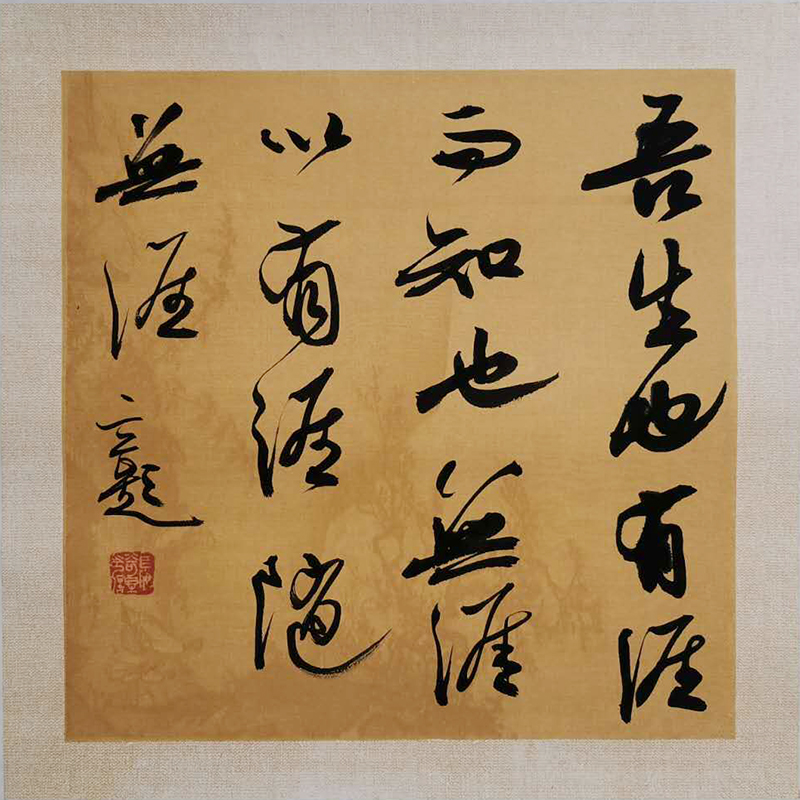 吾生也有涯
而知也無涯
以有涯隨
無涯
題